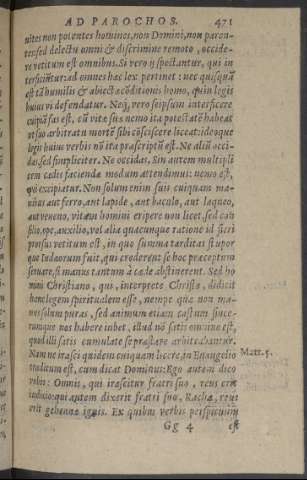 AD PAROCHOS. 471
uites non potentes homines, non Domini, non paren-
tes: sed delectu omni & discrimine remoto, occide-
re vetitum est omnibus. Si verò spectantur, qui in
terficiũtur: ad omnes hæc lex pertinet: nec quisquã
est tã humilis & abiectæ cõditionis homo, quin legis
huius vi defendatur. Neq; vero seipsum interficere
cuiquã fas est, cũ vitæ suæ nemo ita potestatẽ habeat
vt suo arbitratu mortẽ sibi cõsciscere liceat: ideoque
legis huius verbis nõ ita præscriptũ est. Ne aliũ occi-
das, sed simpliciter. Ne occidas. Sin autem multipli
cem cædis faciendæ modum attendimus: nemo est,
qui excipiatur. Non solum enim suis cuiquam ma-
nibus aut ferro, aut lapide, aut baculo, aut laqueo,
aut veneno, vitam homini eripere non licet, sed con
silio, ope, auxilio, vel alia quacunque ratione id fieri
prorsus vetitum est, in quo summa tarditas stupor
que Iudæorum fuit, qui crederent se hoc præceptum
seruare, si manus tantum à cæde abstinerent. Sed ho
mini Christiano, qui, interprete Christo, didicit
hanc legem spiritualem esse, nempe quæ non ma-
nus solùm puras, sed animum etiam castum since-
rumque nos habere iubet, illud nõ satis omnino est,
quod illi satis cumulatè se præstare arbitrabantur.
Nam ne irasci quidem cuiquam licere, in Euangelio
traditum est, cum dicat Dominus: Ego autem dico
vobis: Omnis, qui irascitur fratri suo, reus erit
iudicio: qui autem dixerit fratri suo, Racha, reus
erit gehennæ ignis. Ex quibus verbis perspicuum
Matt. 5.
Gg 4 est